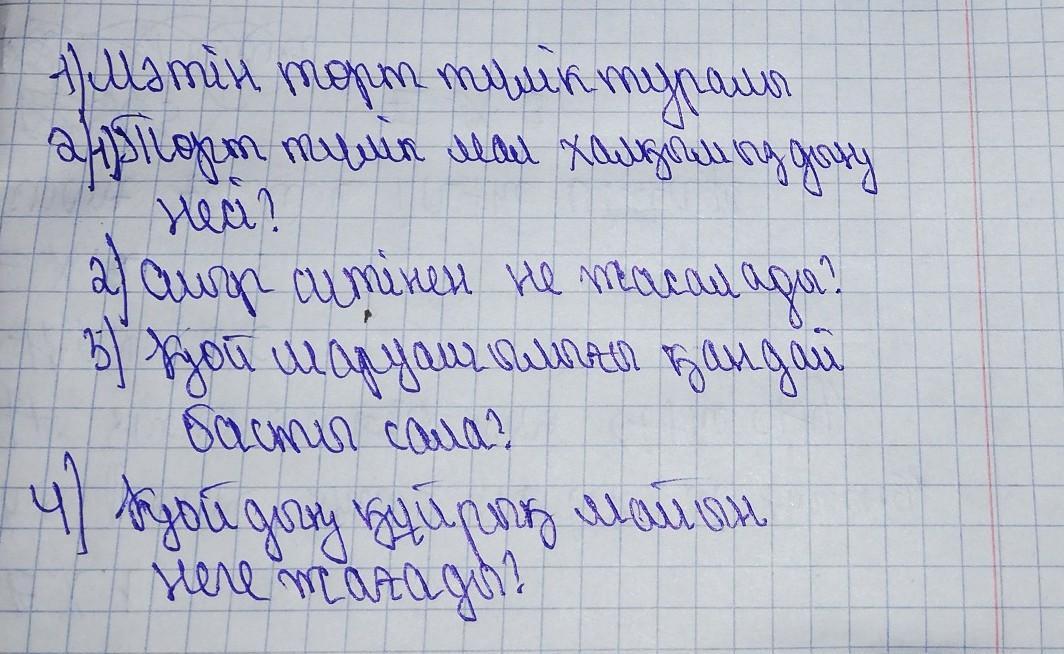 1) Мәтін төрт түлік туралы
2) 1) Төрт түлік мал халқымыздың
несі?
2) Сиыр сүтінен не жасалады?
3) Қой шаруашылығы қандай
басты сала?
4) Қойдың құйрық майын
неге жағады?